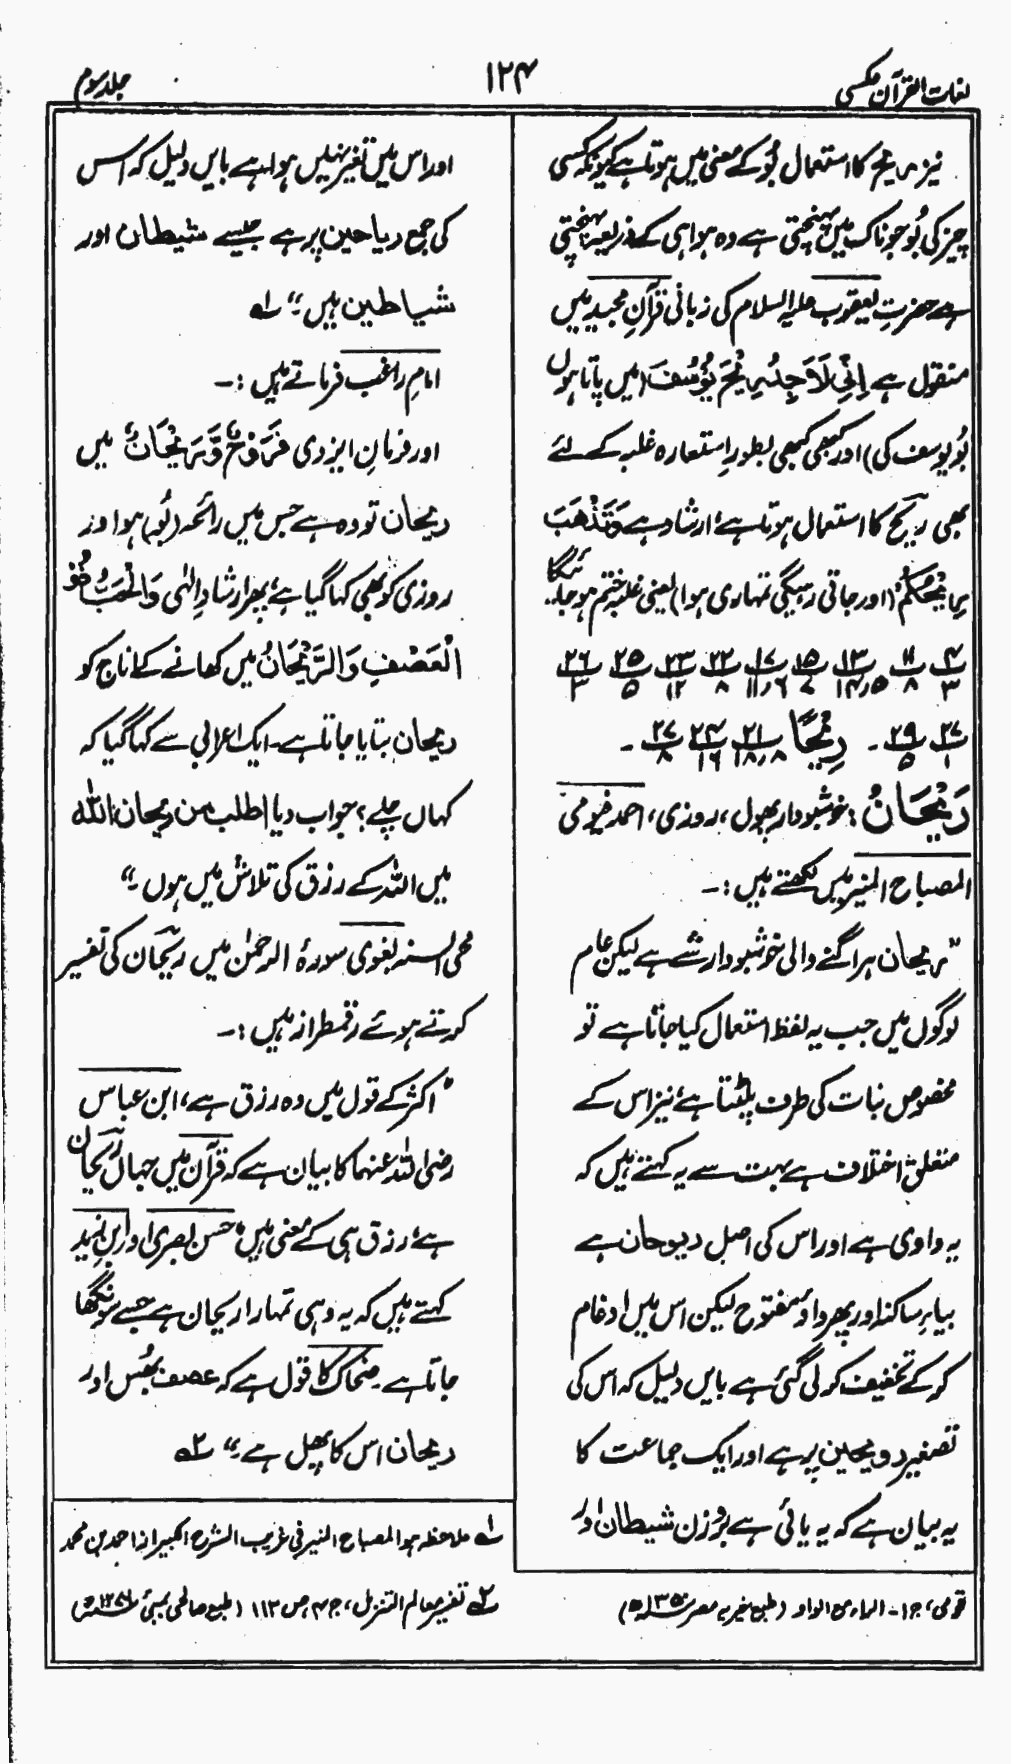 لغات القرآن عکسی
۱۲۴
جلد سوم
نیز ریح کا استعمال بُو کے معنی میں ہوتا ہے کیونکہ کسی
چیز کی بُو جو ناک میں پہنچتی ہے وہ ہوا ہی کے ذریعہ پہنچتی
ہے حضرت یعقوب علیہ السلام کی زبانی قرآنِ مجید میں
منقول ہے اِنِّی لَاَجِدُ رِیْحَ یُوْسُفَ (میں پاتا ہوں
بُو یوسف کی) اور کبھی کبھی بطورِ استعارہ غلبہ کے لئے
بھی ریح کا استعمال ہوتا ہے ارشاد ہے وَتَذْهَبَ
رِیْحُكُمْ (اور جاتی رہیگی تمہاری ہوا) یعنی غلبہ ختم ہو جائیگا
۴/۳ ۱۱/۸ ۱۳/۱۴٫۵ ۱۵/۷ ۱۷/۱۱٫۶ ۲۲/۸ ۲۳/۱۲ ۲۵/۵ ۲۶/۳
۲۷/۱ ۲۹/۵ ۔ رِیْحًا ۲۱/۱۸٫۸ ۲۴/۱۶ ۲۷/۸ ۔
رَیْحَانُ : خوشبودار پھول، روزی، احمد فیومی
المصباح المنیر میں لکھتے ہیں :۔
”ریحان ہر اگنے والی خوشبودار شے ہے لیکن عام
لوگوں میں جب یہ لفظ استعمال کیا جاتا ہے تو
مخصوص نبات کی طرف پلٹتا ہے نیز اس کے
متعلق اختلاف ہے بہت سے یہ کہتے ہیں کہ
یہ واوی ہے اور اس کی اصل ریوحان ہے
بیاءِ ساکنہ اور پھر واؤ مفتوح لیکن اس میں ادغام
کر کے تخفیف کر لی گئی ہے بایں دلیل کہ اس کی
تصغیر رویحین پر ہے اور ایک جماعت کا
یہ بیان ہے کہ یہ یائی ہے بروزن شیطان اور
اور اس میں تغیر نہیں ہوا ہے بایں دلیل کہ اس
کی جمع ریاحین پر ہے جیسے شیطان اور
شیاطین ہیں ۔“ ۱؎
امام راغب فرماتے ہیں :۔
اور فرمانِ ایزدی فَرَوْحٌ وَّرَیْحَانٌ میں
ریحان تو وہ ہے جس میں رائحہ (بُو) ہو اور
روزی کو بھی کہا گیا ہے پھر ارشادِ الٰہی وَالْحَبُّ ذُو
الْعَصْفِ وَالرَّیْحَانُ میں کھانے کے اناج کو
ریحان بتایا جاتا ہے۔ ایک اعرابی سے کہا گیا کہ
کہاں چلے؟ جواب دیا اطلب من ریحان اللّٰه
میں اللہ کے رزق کی تلاش میں ہوں ۔“
محی السنہ بغوی سورۂ الرحمٰن میں ریحان کی تفسیر
کرتے ہوئے رقمطراز ہیں :۔
”اکثر کے قول میں وہ رزق ہے، ابن عباس
رضی اللہ عنہما کا بیان ہے کہ قرآن میں جہاں ریحان
ہے رزق ہی کے معنی ہیں، حسن بصری اور ابن زید
کہتے ہیں کہ یہ وہی تمہارا ریحان ہے جسے سونگھا
جاتا ہے۔ ضحاک کا قول ہے کہ عصف بھُس اور
ریحان اس کا پھل ہے ۔“ ۲؎
۱؎ ملاحظہ ہو المصباح المنیر فی غریب الشرح الکبیر از احمد بن محمد
فیومی، ج ۱ - الراء مع الواو (طبع خیریہ مصر ۱۳۵ھ)
۲؎ تفسیر معالم التنزیل، ج ۴، ص ۱۱۳ (طبع صالحی بمبئی